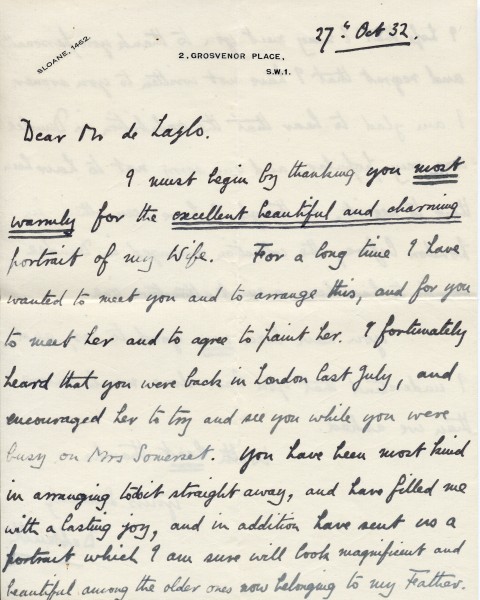 27th Oct 32.
SLOANE, 1462.
2, GROSVENOR PLACE,
S.W.1.
Dear Mr de Laszlo.
I must begin by thanking you most
warmly for the excellent beautiful and charming
portrait of my Wife. For a long time I have
wanted to meet you and to arrange this, and for you
to meet her and to agree to paint her. I fortunately
heard that you were back in London last July, and
encouraged her to try and see you while you were
busy on Mrs Somerset. You have been most kind
in arranging to do it straight away, and have filled me
with a lasting joy, and in addition have sent us a
portrait which I am sure will look magnificent and
beautiful among the older ones now belonging to my Father.